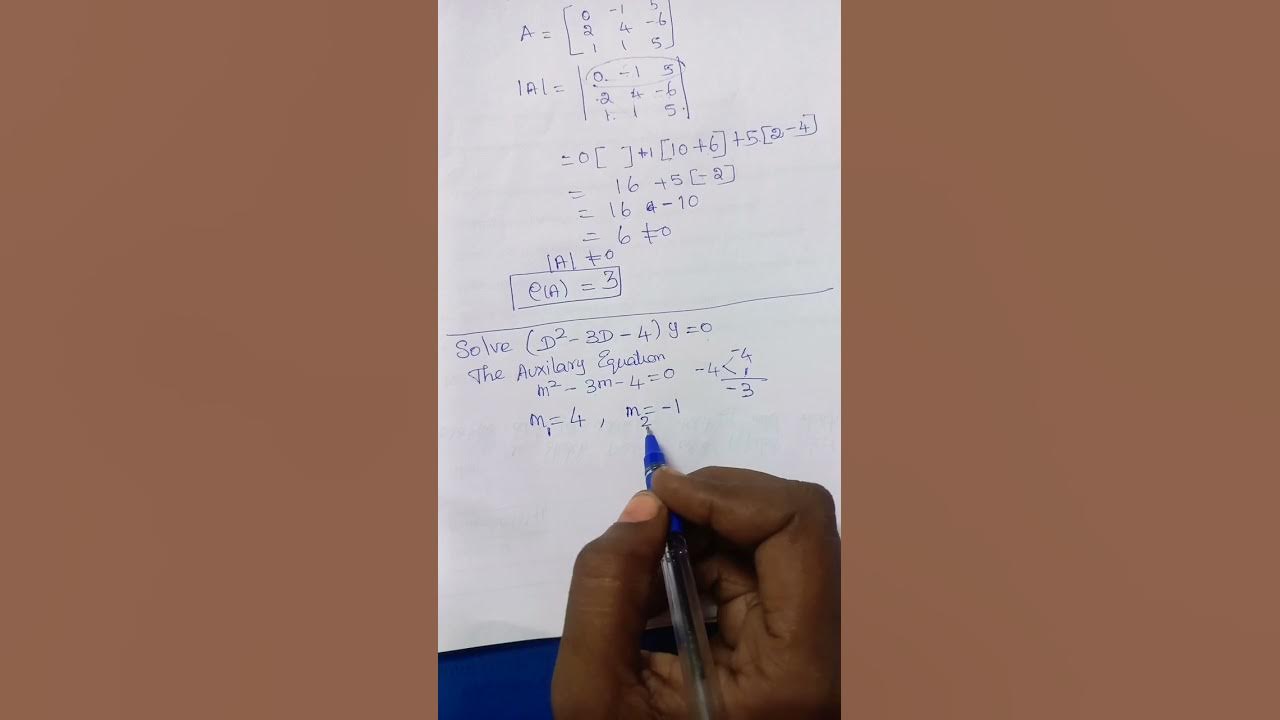 A = [ 0 -1 5
2 4 -6
1 1 5 ]
|A| = | 0 -1 5
2 4 -6
1 1 5 |
= 0 [ ] +1 [10+6] +5[2-4]
= 16 +5 [-2]
= 16 -10
= 6 ≠0
|A| ≠0
ρ(A) = 3
Solve (D²-3D-4) y=0
The Auxilary Equation
m²-3m-4=0 -4 < -4
1
-3
m₁=4 , m₂=-1